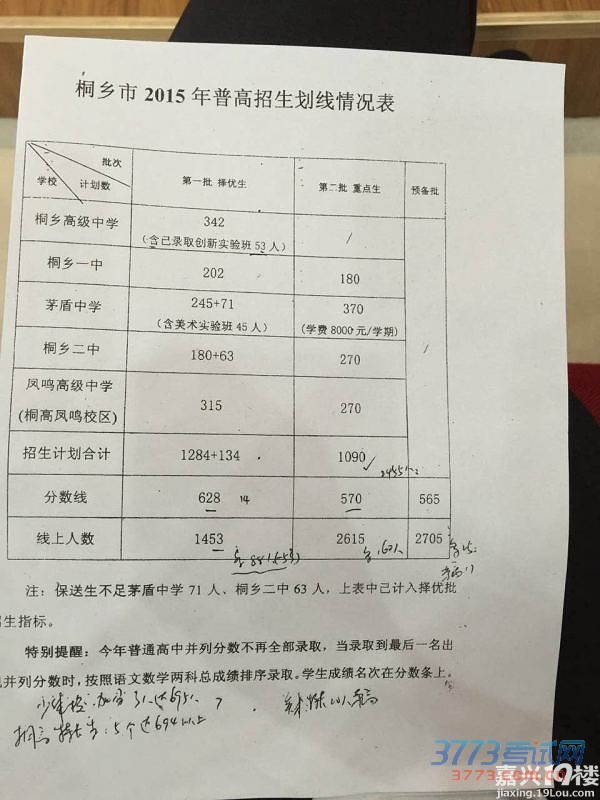 桐乡市 2015 年普高招生划线情况表
批次
学校 计划数
第一批 择优生
第二批 重点生
预备批
桐乡高级中学
342
(含已录取创新实验班 53 人)
/
桐乡一中
202
180
茅盾中学
245+71
(含美术实验班 45 人)
370
(学费 8000 元/学期)
桐乡二中
180+63
270
/
凤鸣高级中学
(桐高凤鸣校区)
315
270
招生计划合计
1284+134
1090
分数线
628
570
565
线上人数
1453
2615
2705
注：保送生不足茅盾中学 71 人、桐乡二中 63 人，上表中已计入择优批
生指标。
特别提醒：今年普通高中并列分数不再全部录取，当录取到最后一名出
并列分数时，按照语文数学两科总成绩排序录取。学生成绩名次在分数条上。
3773考试网
3773.com.cn
嘉兴19楼
jiaxing.19Lou.com